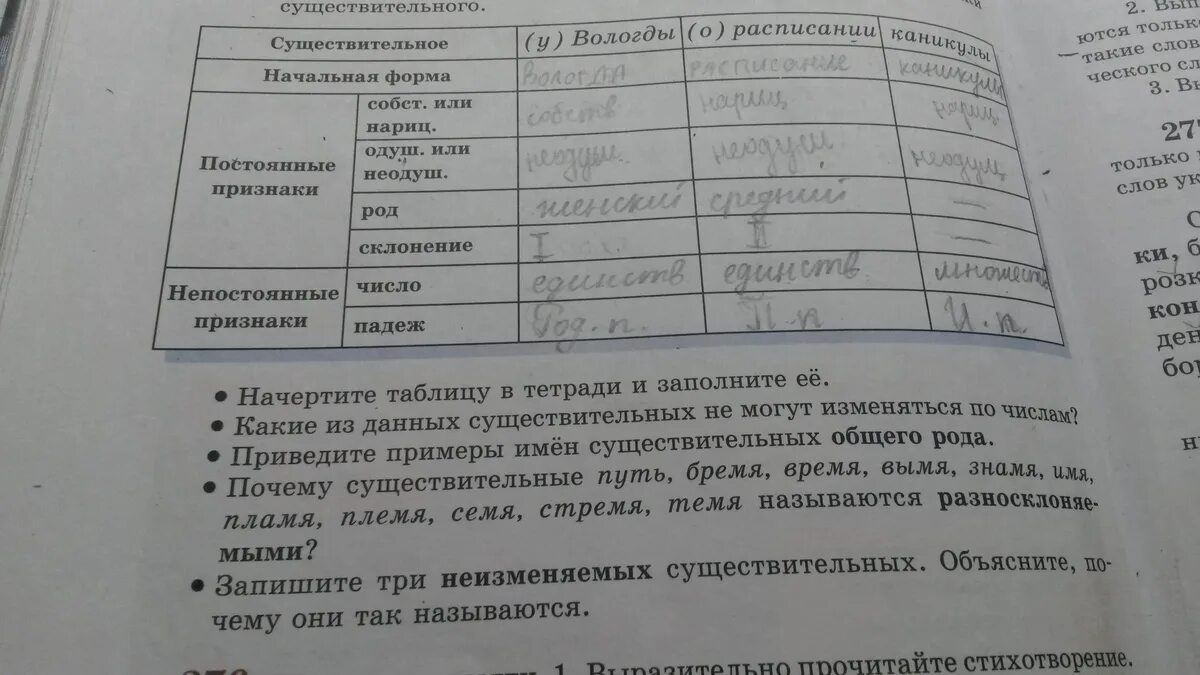 существительного.
Существительное (у) Вологды (о) расписании каникулы
Начальная форма Вологда расписание каникулы
Постоянные признаки
собст. или нариц. собств нариц нариц
одуш. или неодуш. неодуш. неодуш неодуш
род женский средний —
склонение I II —
Непостоянные признаки
число единств единств. множеств
падеж Род.п. П.п И.п.
• Начертите таблицу в тетради и заполните её.
• Какие из данных существительных не могут изменяться по числам?
• Приведите примеры имён существительных общего рода.
• Почему существительные путь, бремя, время, вымя, знамя, имя,
пламя, племя, семя, стремя, темя называются разносклоняе-
мыми?
• Запишите три неизменяемых существительных. Объясните, по-
чему они так называются.
1. Выразительно прочитайте стихотворение.
2. Вып
ются только
такие слов
ческого сл
3. Вы
27
только
слов ук
С
ки, б
розк
кон
ден
бор
н